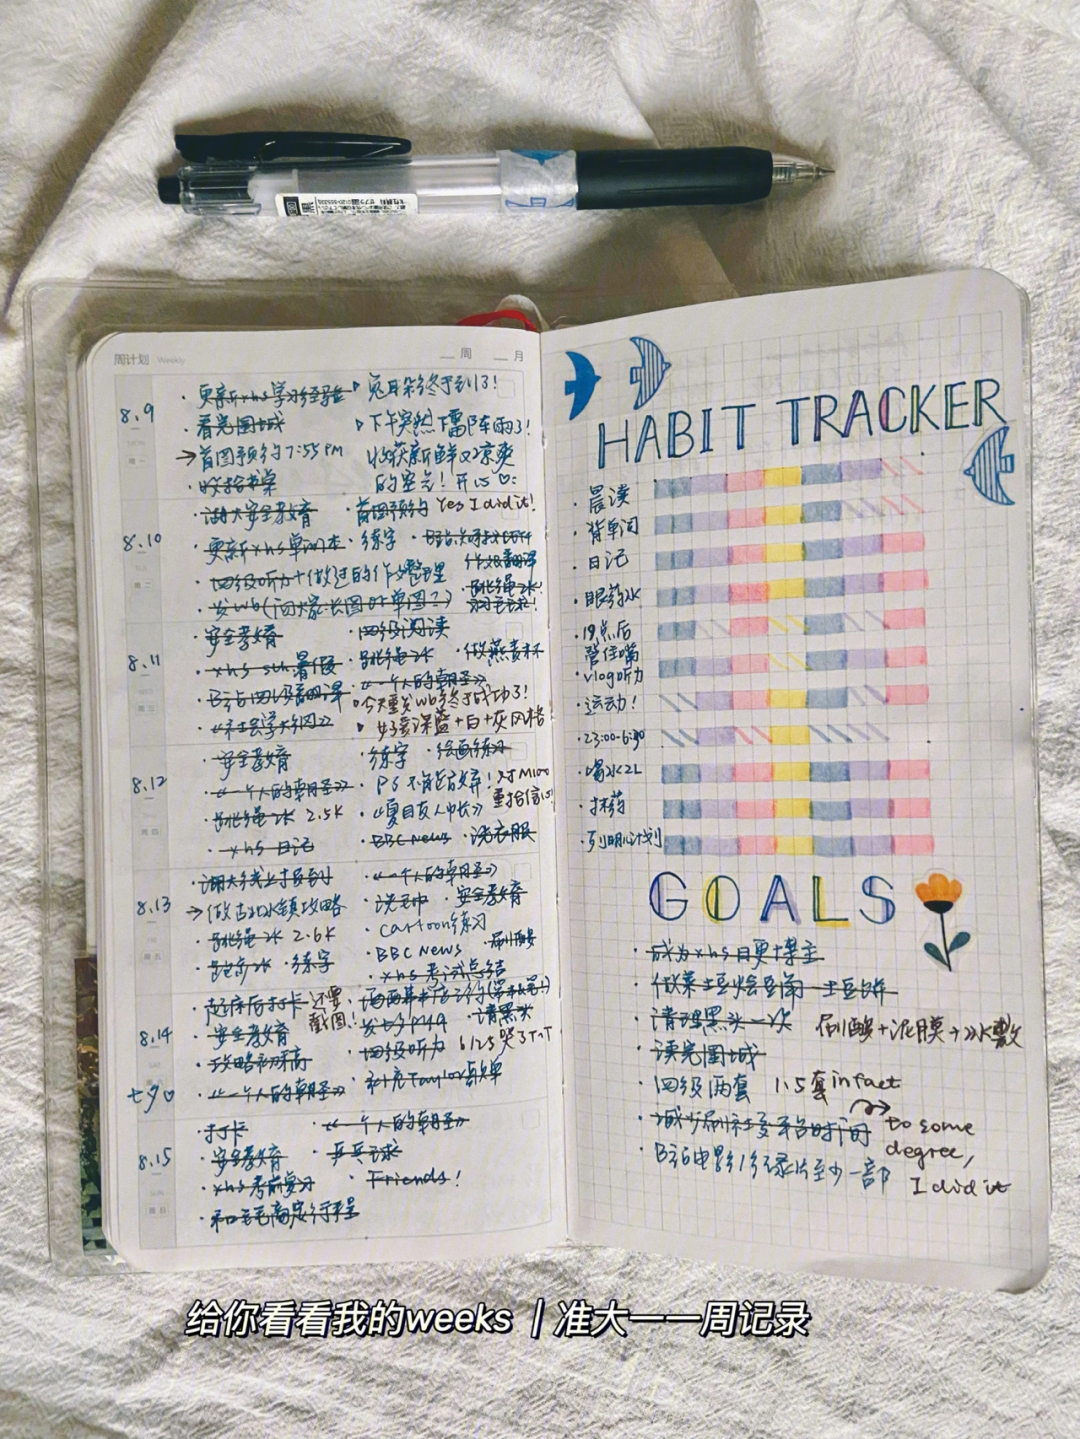 周计划 Weekly
周 月
8.9
· 更新xhs学习经验
· 看完围城
→首图预约7:55PM
· 收拾书桌
下午突然下雷阵雨了!
收获新鲜又凉爽
的空气!开心♡:
8.10
· 湖大安全教育
· 首图预约 Yes I did it!
· 更新xhs单词本 · 练字
· 四级听力+做过的作文整理
作文翻译
· 跳绳2K!
· 发wb(问大家长图or单图?)
8.11
· 安全教育
· 四级阅读
· xhs sth暑假
· 跳绳2K
· 做燕麦杯
· B站四级翻译
· 《一个人的朝圣》
· 《社会学大纲》
今天重发wb终于成功了!
好爱深蓝+白+灰风格!
8.12
· 安全教育
· 练字 · 绘画练习
· 《一个人的朝圣》
· PS不能放弃!
· 跳绳2K 2.5K
· 《夏目友人帐》
· xhs 日记
· BBC News · 洗衣服
8.13
· 湖大线上报到
· 《一个人的朝圣》
→做古北水镇攻略
· 安全教育
· 跳绳2K 2.6K
· Cartoon练习
· 跑步2K · 练字
· BBC News · 刷酸
· xhs 考试总结
8.14
七夕♡
· 起床后打卡 还要
截图!
· 安全教育
· 请黑头
· 攻略初稿
· 四级听力 6/25 哭了T^T
· 《一个人的朝圣》
· 补充Taylor歌单
8.15
· 打卡
· 《一个人的朝圣》
· 安全教育
· 乒乓球
· xhs考前复习
· Friends!
· 和毛毛商定行程
HABIT TRACKER
· 晨读
· 背单词
· 日记
· 眼药水
· 19点后
管住嘴
· vlog听力
· 运动!
· 23:00-6:30
· 喝水2L
· 抹药
· 列明儿计划
GOALS
· 成为xhs日更博主
· 做菜土豆烩豆角 土豆饼
· 清理黑头一次 刷酸+泥膜+水敷
· 读完围城
· 四级两套 1.5套in fact
· 减少刷社交平台时间 to some
degree,
I did it
· B站电影/纪录片至少一部
给你看看我的weeks｜准大一一周记录